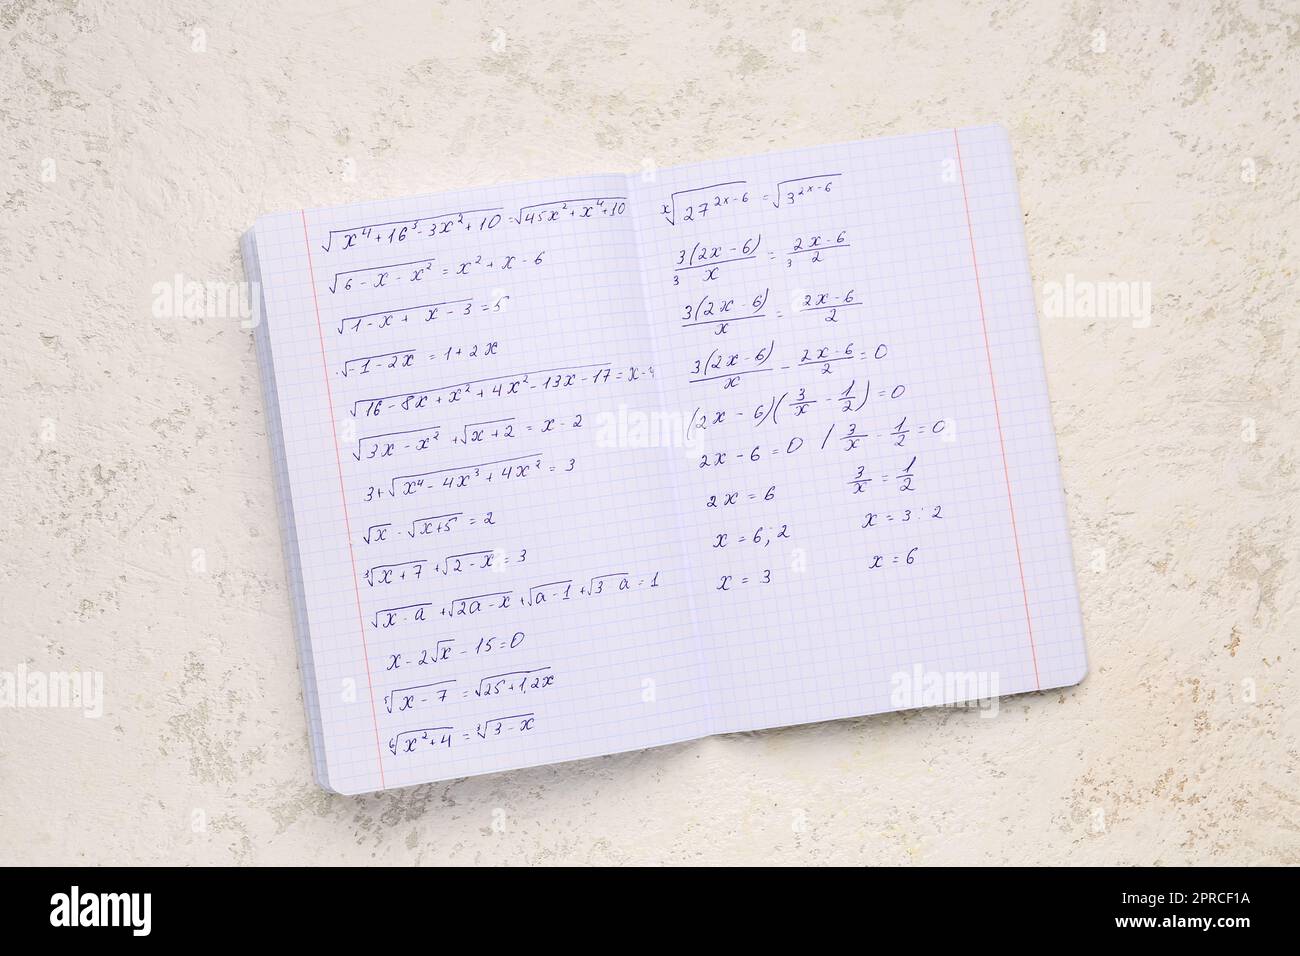 √(x⁴+16³-3x²+10) = √(45x²+x⁴+10)
√(6-x-x²) = x²+x-6
√(1-x+ x-3) = 5
√(-1-2x) = 1+2x
√(16-8x+x²+4x²-13x-17) = x-
√(3x-x²) + √(x+2) = x-2
3+√(x⁴-4x³+4x²) = 3
√x - √(x+5) = 2
³√(x+7) + √(2-x) = 3
√(x-a) + √(2a-x) + √(a-1) + √(3 a) = 1
x-2√x-15=0
⁵√(x-7) = √(25+1,2x)
⁶√(x²+4) = ³√(3-x)
ˣ√(27^(2x-6)) = √(3^(2x-6))
3^(3(2x-6)/x) = 3^((2x-6)/2)
3(2x-6)/x = (2x-6)/2
3(2x-6)/x - (2x-6)/2 = 0
(2x-6)(3/x - 1/2) = 0
2x-6=0 / 3/x - 1/2 = 0
2x=6 3/x = 1/2
x=6;2 x=3:2
x=3 x=6
alamy
alamy
Image ID: 2PRCF1A
www.alamy.com